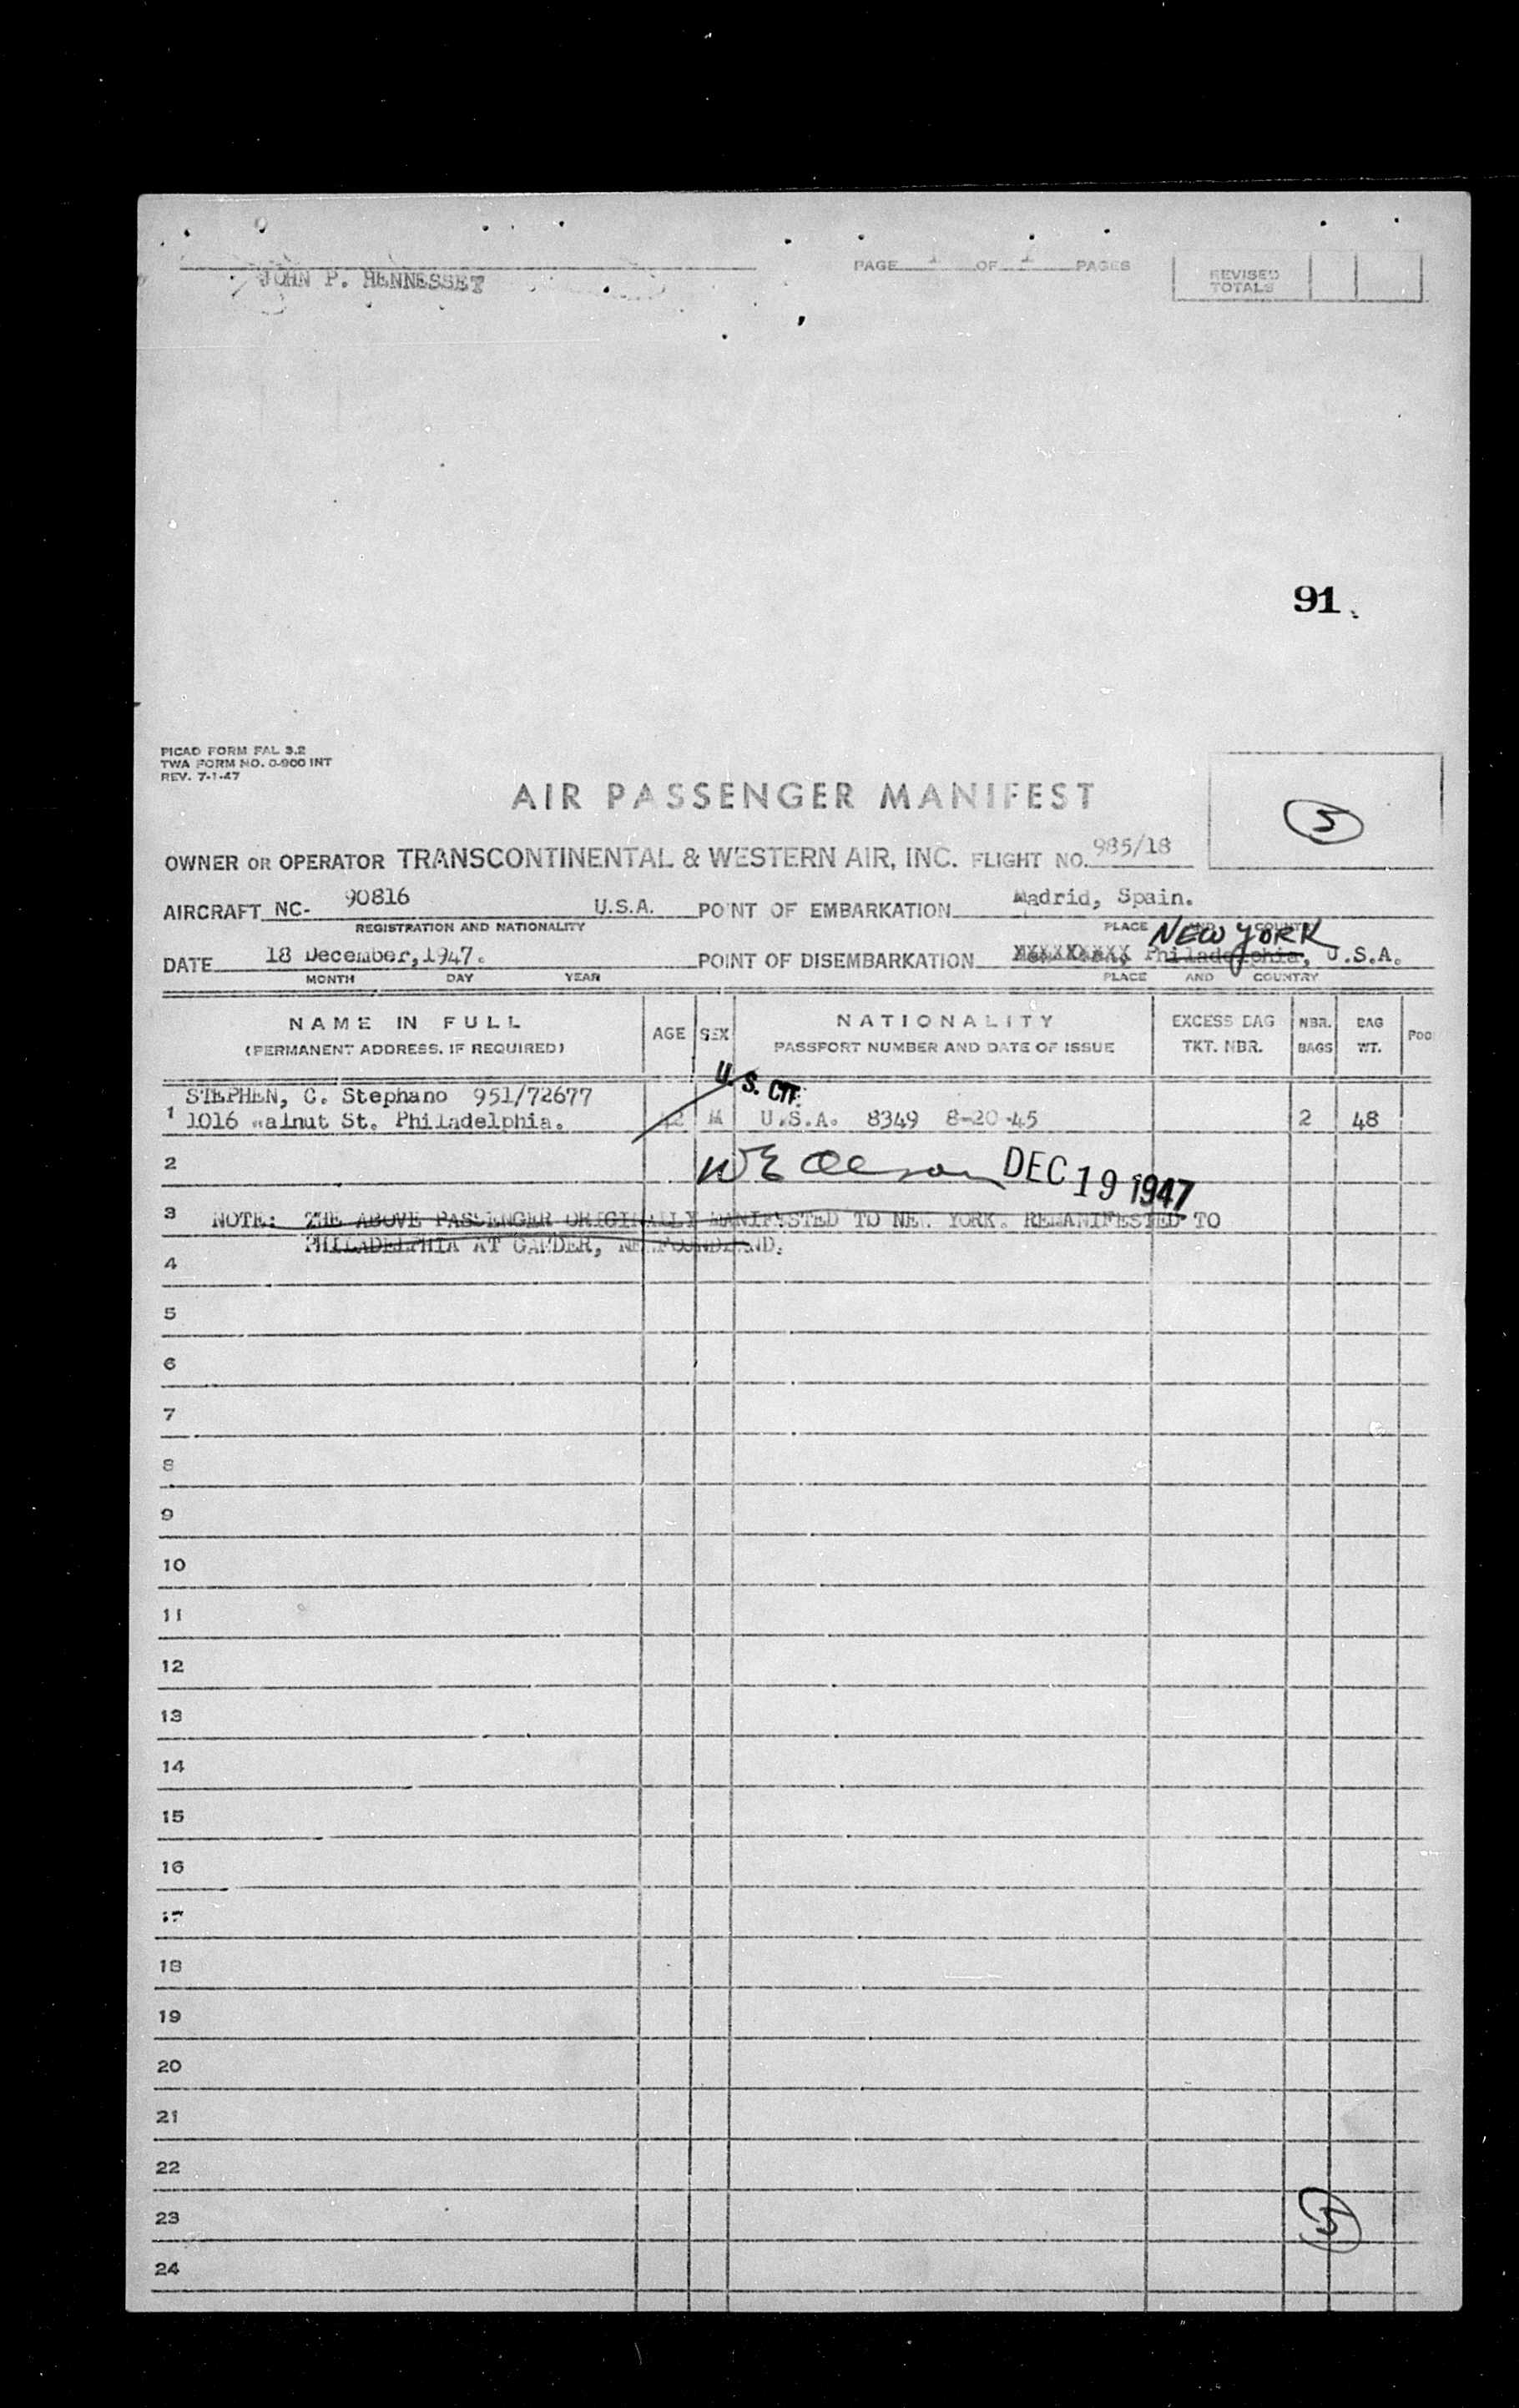 PAGE 1 OF 1 PAGES
REVISED TOTALS
JOHN P. HENNESSET
91
PICAO FORM FAL 3.2
TWA FORM NO. O-900 INT
REV. 7-1-47
AIR PASSENGER MANIFEST
5
OWNER OR OPERATOR TRANSCONTINENTAL & WESTERN AIR, INC. FLIGHT NO. 985/18
AIRCRAFT NC- 90816 U.S.A. POINT OF EMBARKATION Madrid, Spain.
REGISTRATION AND NATIONALITY PLACE AND COUNTRY
NEW YORK
DATE 18 December, 1947. POINT OF DISEMBARKATION Philadelphia, U.S.A.
MONTH DAY YEAR PLACE AND COUNTRY
NAME IN FULL AGE SEX NATIONALITY EXCESS BAG NBR. BAG POO
(PERMANENT ADDRESS. IF REQUIRED) PASSPORT NUMBER AND DATE OF ISSUE TKT. NBR. BAGS WT.
U. S. CIT.
STEPHEN, C. Stephano 951/72677
1 1016 Walnut St. Philadelphia. M U.S.A. 8349 8-20-45 2 48
2 DEC 19 1947
3 NOTE: THE ABOVE PASSENGER ORIGINALLY MANIFESTED TO NEW YORK. REMANIFESTED TO
PHILADELPHIA AT GANDER, NEWFOUNDLAND.
4
5
6
7
8
9
10
11
12
13
14
15
16
17
18
19
20
21
22
23
24